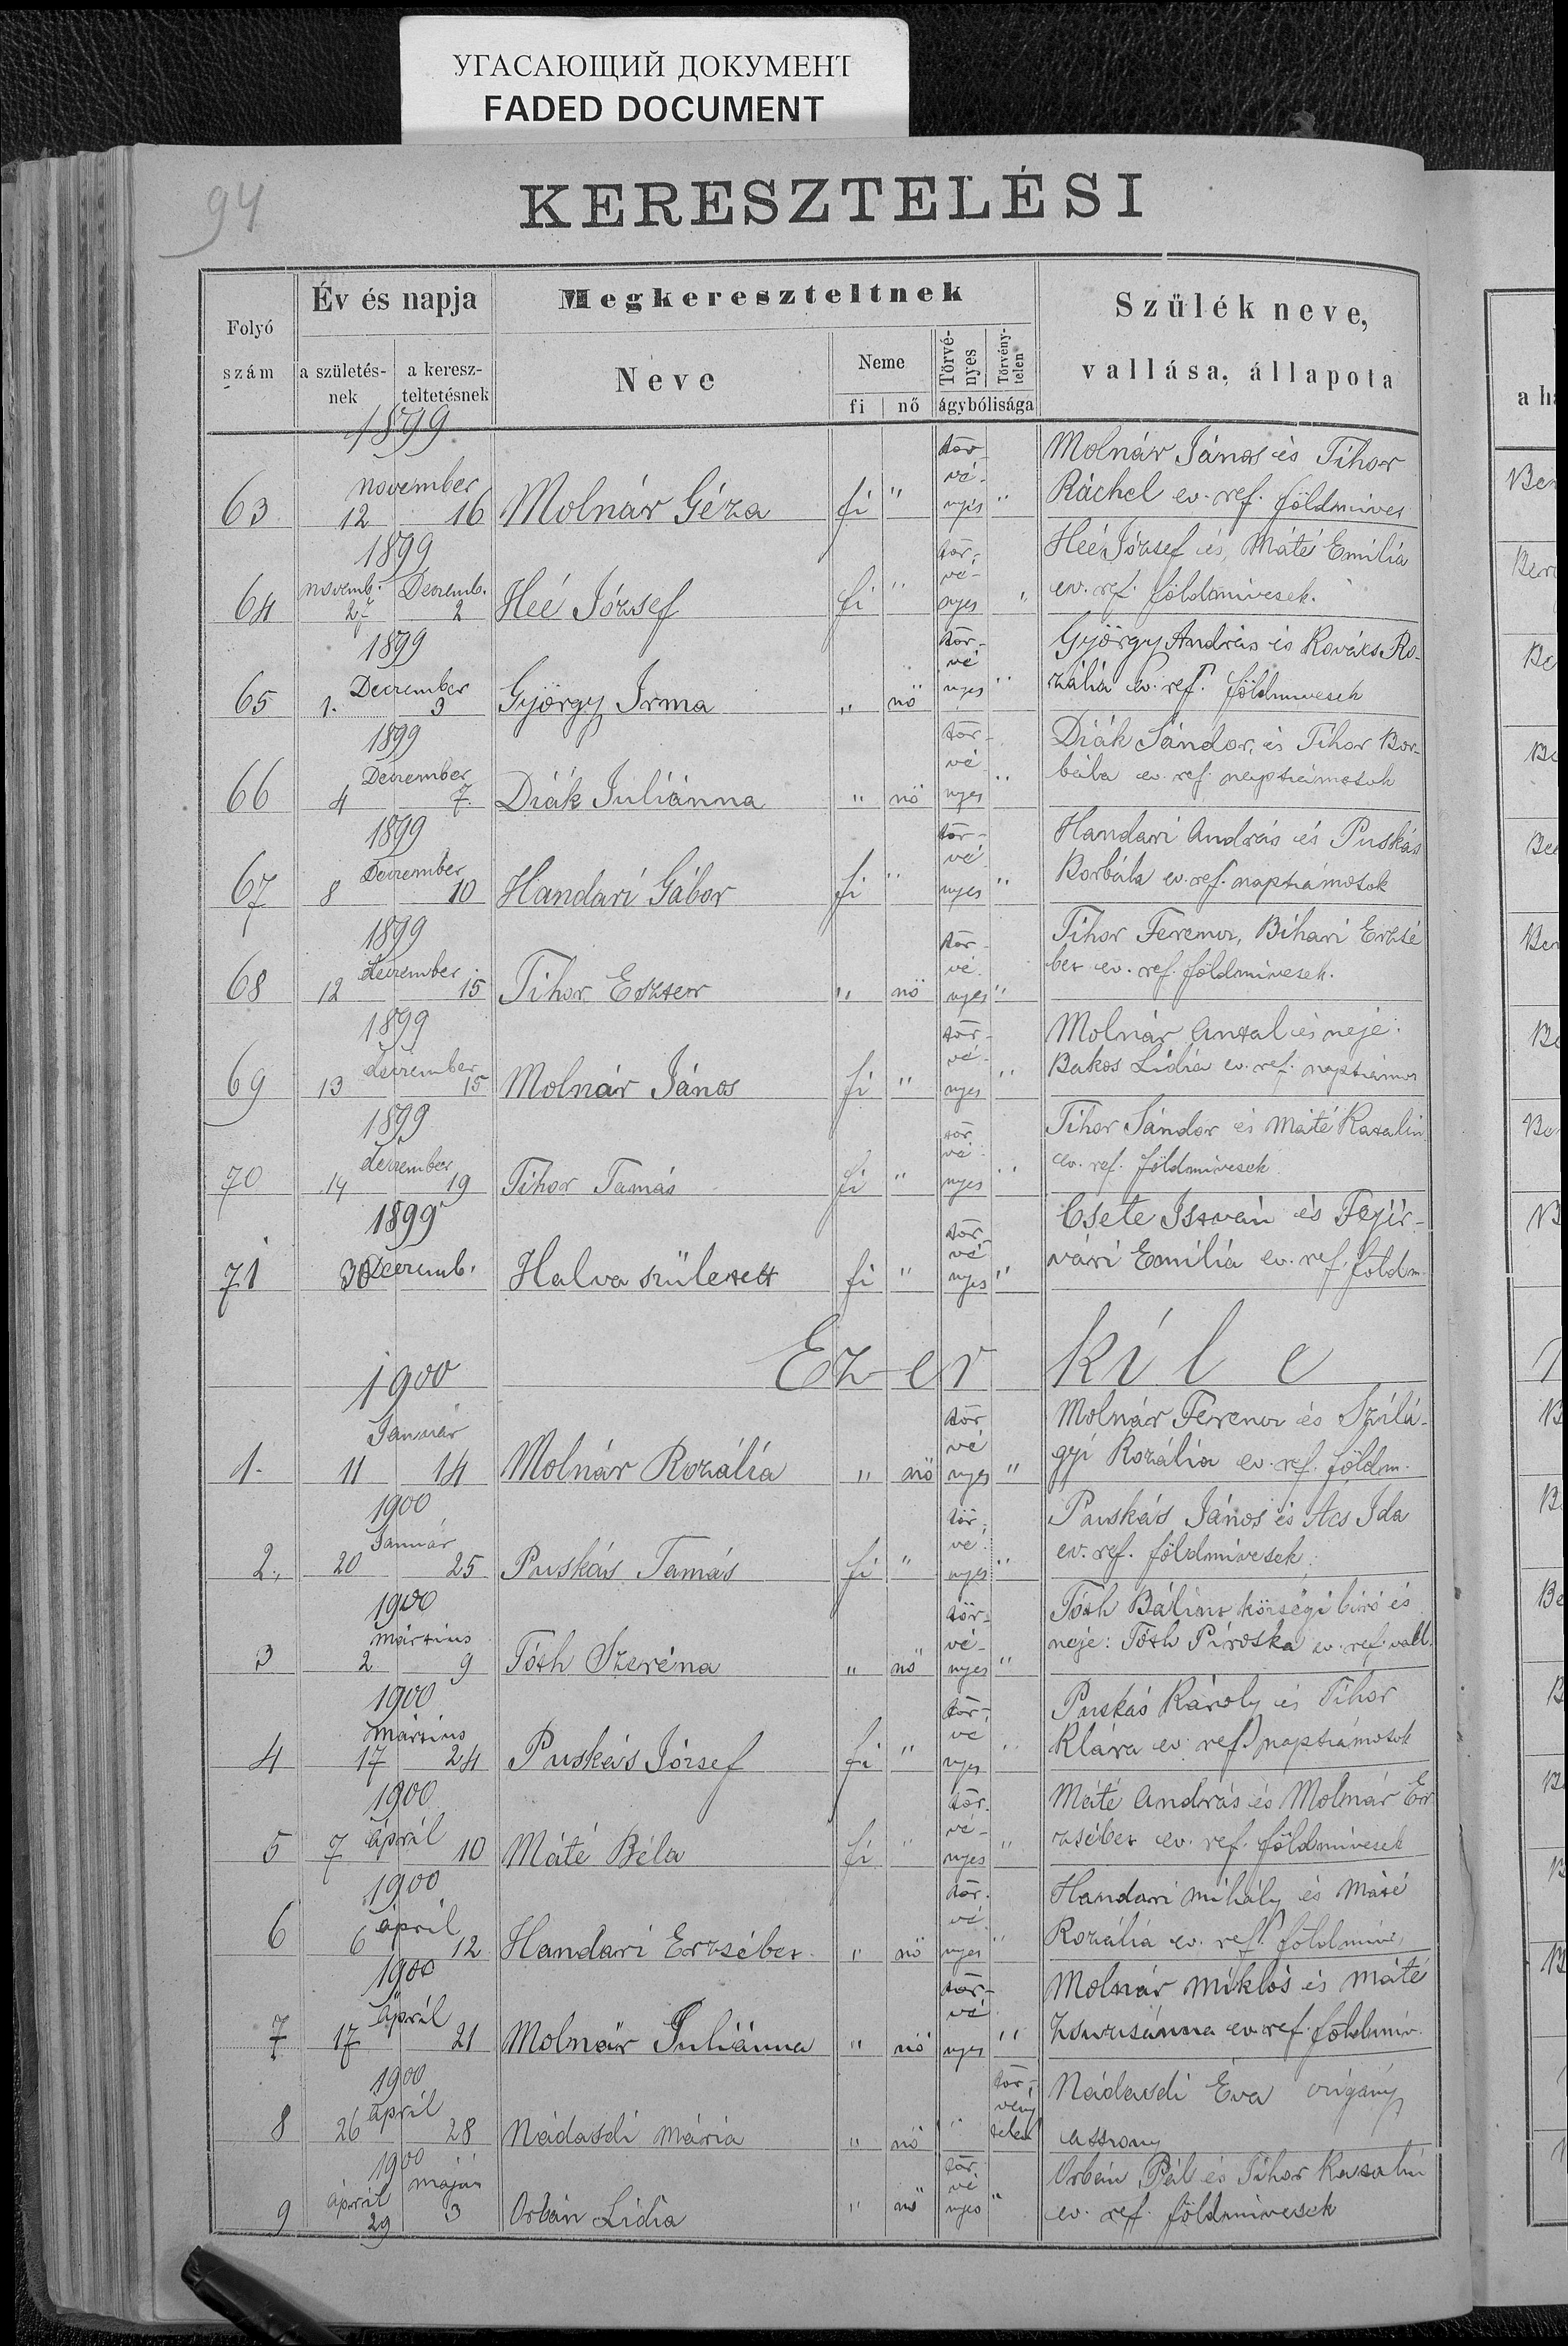 УГАСАЮЩИЙ ДОКУМЕНТ
FADED DOCUMENT
94
KERESZTELÉSI
Folyó szám
Év és napja
a születés-nek
a keresz-teltetésnek
Megkereszteltnek
Neve
Neme
fi
nő
Törvé-nyes
Törvény-telen
ágybólisága
Szülék neve,
vallása, állapota
1899
63 november 12 16 Molnár Géza fi " tör-vé-nyes " Molnár János és Tihor
Ráchel ev. ref. földmíves
1899
64 novemb. 27 Decemb. 2 Heé József fi " tör-vé-nyes " Heé József és Máté Emília
ev. ref. földmívesek.
1899
65 December 1. 3 György Irma " nö tör-vé nyes " György András és Kovács Ro-
zália ev. ref. földmivesek
1899
66 December 4 7. Diák Juliánna " nö tör-vé nyes " Diák Sándor és Tihor Bor-
bála ev. ref. napszámosok
1899
67 December 8 10 Handari Gábor fi " tör-vé nyes " Handari András és Puskás
Borbála ev. ref. napszámosok
1899
68 december 12 15 Tihor Eszter " nö tör-vé nyes " Tihor Ferencz, Bihari Erzsé
bet ev. ref. földmívesek.
1899
69 december 13 15 Molnár János fi " tör-vé-nyes " Molnár Antal és neje:
Bakos Lidia ev. ref. napszámos
1899
70 december 14 19 Tihor Tamás fi " tör vé nyes " Tihor Sándor és Máté Katalin
ev. ref. földmívesek
1899
71 30 Decemb. Halva született fi " tör-vé nyes " Csete István és Fejér-
vári Emília ev. ref. földm.
Ezer kile
1900
1. Január 11 14 Molnár Rozália " nö tör vé nyes " Molnár Ferencz és Szilá-
gyi Rozália ev. ref. földm.
1900
2. Január 20 25 Puskás Tamás fi " tör-vé nyes " Puskás János és Ács Ida
ev. ref. földmívesek.
1900
3 március 2 9 Tóth Szeréna " nö tör-vé-nyes " Tóth Bálint községi bíró és
neje: Tóth Piroska ev. ref. vall.
1900
4 március 17 24 Puskás József fi " tör-vé nyes " Puskás Károly és Tihor
Klára ev. ref. napszámosok
1900
5 7 április 10 Máté Béla fi " tör-vé-nyes " Máté András és Molnár Er
zsébet ev. ref. földmívesek
1900
6 6 ápril 12 Handari Erzsébet " nö tör-vé nyes " Handari Mihály és Máté
Rozália ev. ref. földmíve
1900
7 17 Ápril 21 Molnár Juliánna " nö tör-vé nyes " Molnár Miklós és Máté
Zsuzsánna ev. ref. földmív.
1900
8 26 ápril 28 Nádasdi Mária " nö " tör-vény telen Nádasdi Éva czigány
asszony
1900
9 ápril 29 május 3 Orbán Lidia " nö tör vé nyes " Orbán Pál és Tihor Katalin
ev. ref. földmívesek